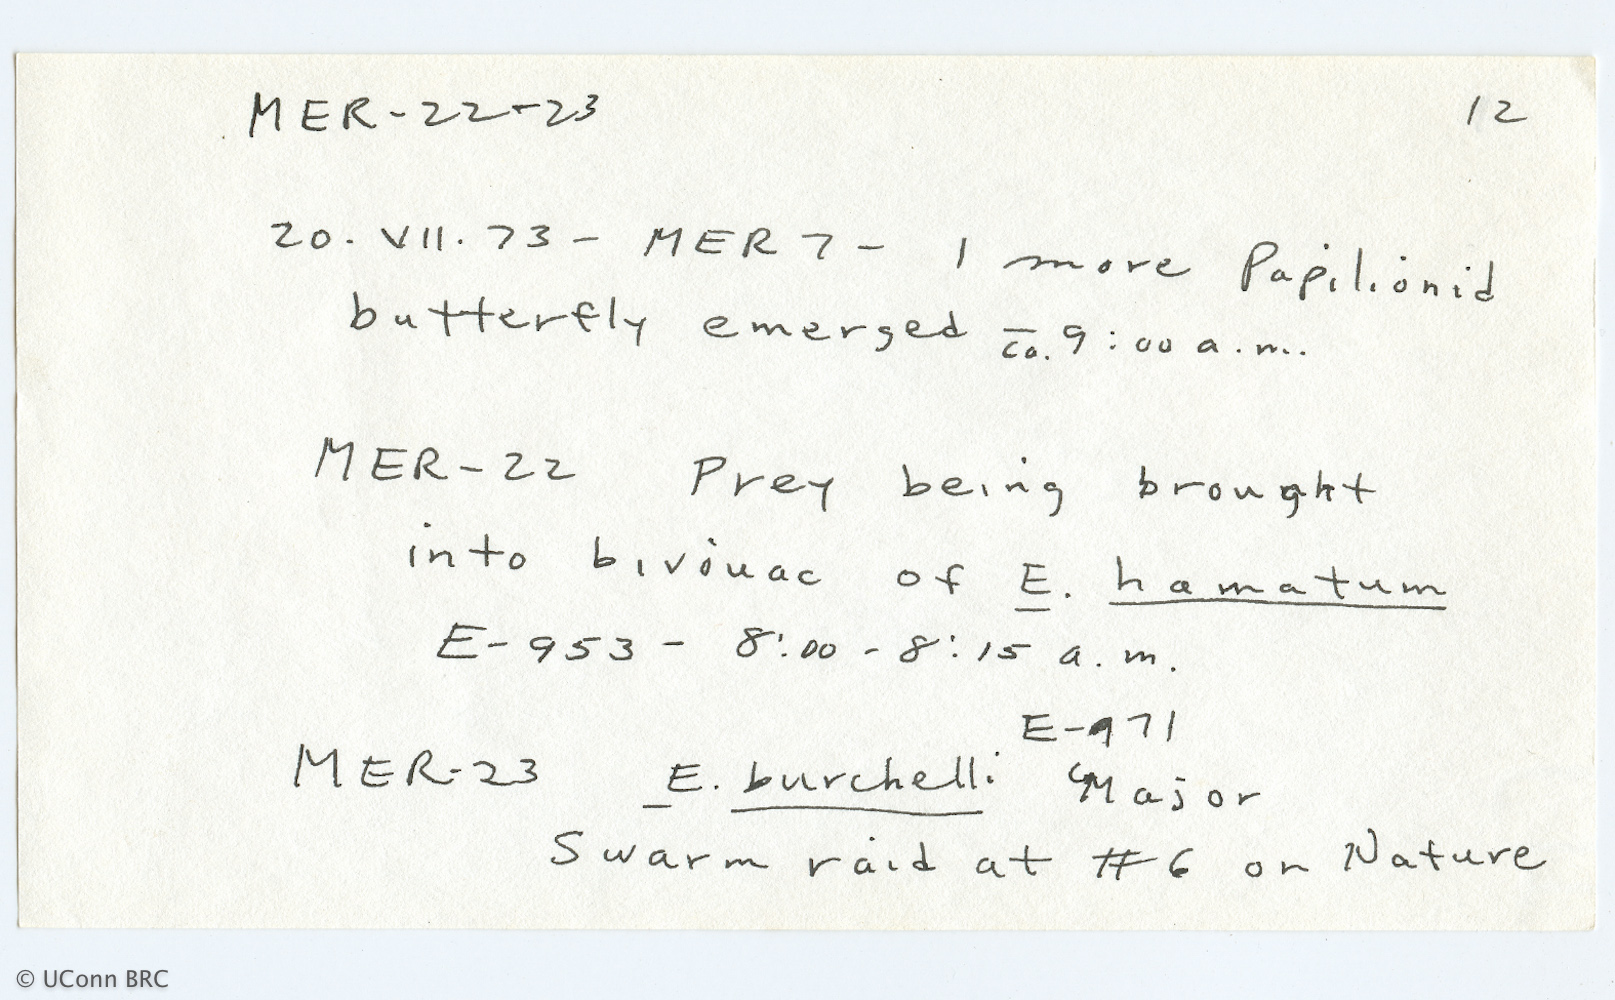 MER-22-23 12
20. VII. 73 - MER 7 - 1 more Papilionid
butterfly emerged ca. 9:00 a.m.
MER-22 Prey being brought
into bivouac of E. hamatum
E-953 - 8:00 - 8:15 a.m.
E-971
MER-23 E. burchelli Major
Swarm raid at #6 on Nature
© UConn BRC